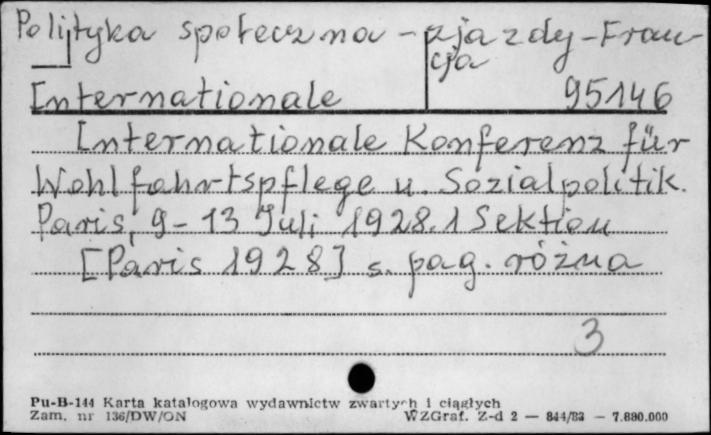 Polityka społeczna - zjazdy - Fran-
cja
Internationale 95146
Internationale Konferenz für
Wohlfahrtspflege u. Sozialpolitik.
Paris, 9-13 Juli 1928. 1 Sektion
[Paris 1928] s. pag. różna
3
Pu-B-144 Karta katalogowa wydawnictw zwartych i ciągłych
Zam. nr 136/DW/ON WZGraf. Z-d 2 — 844/83 — 7.880.000